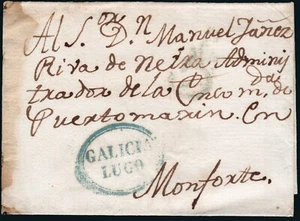 Al S.or D.n Manuel Yañez
Riva de Neyra Adminis
trador de la Encom.da de
Puertomarin. En
GALICIA
LUGO
Monforte.